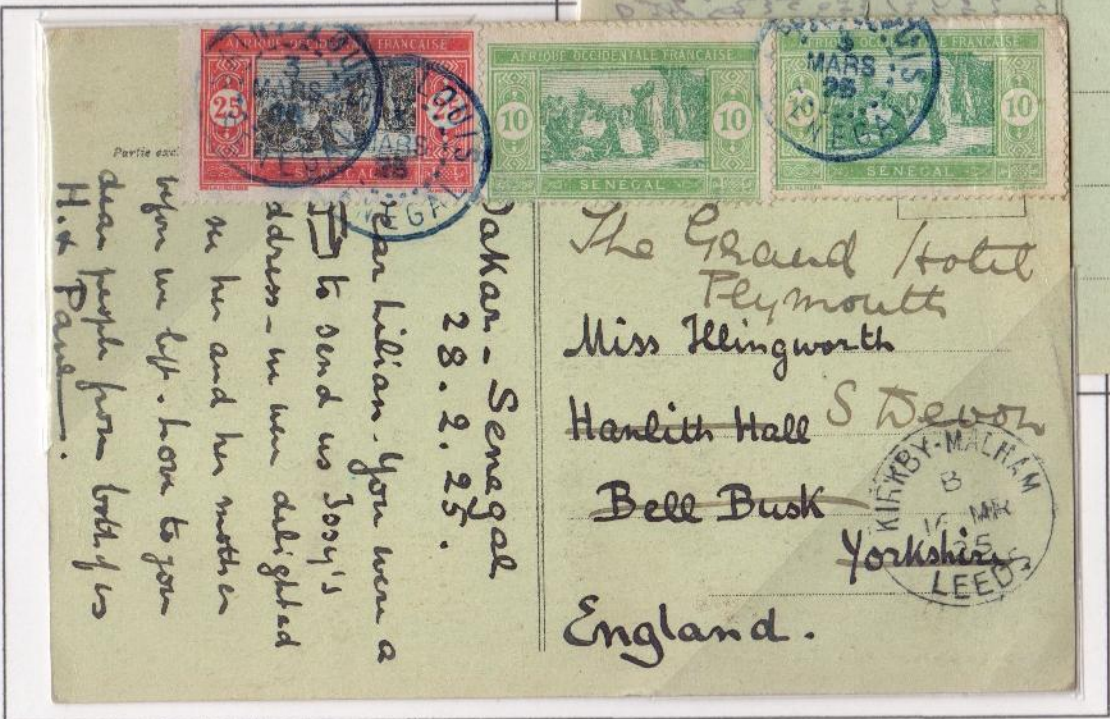 AFRIQUE OCCIDENTALE FRANÇAISE
25
SENEGAL
AFRIQUE OCCIDENTALE FRANÇAISE
10 10
SENEGAL
AFRIQUE OCCIDENTALE FRANÇAISE
10 10
SENEGAL
LOUIS
3
MARS
25
Partie exc
Dakar - Senegal
28.2.25.
ear Lilian. You were a
to send us Josy's
ddress - we were delighted
see her and her mother
before we left. Love to you
dear people from both of us
H. & Paul.
The Grand Hotel
Plymouth
S Devon
Miss Illingworth
Hanlith Hall
Bell Busk
Yorkshire
England.
KIRKBY-MALHAM
B
MR
25
LEEDS